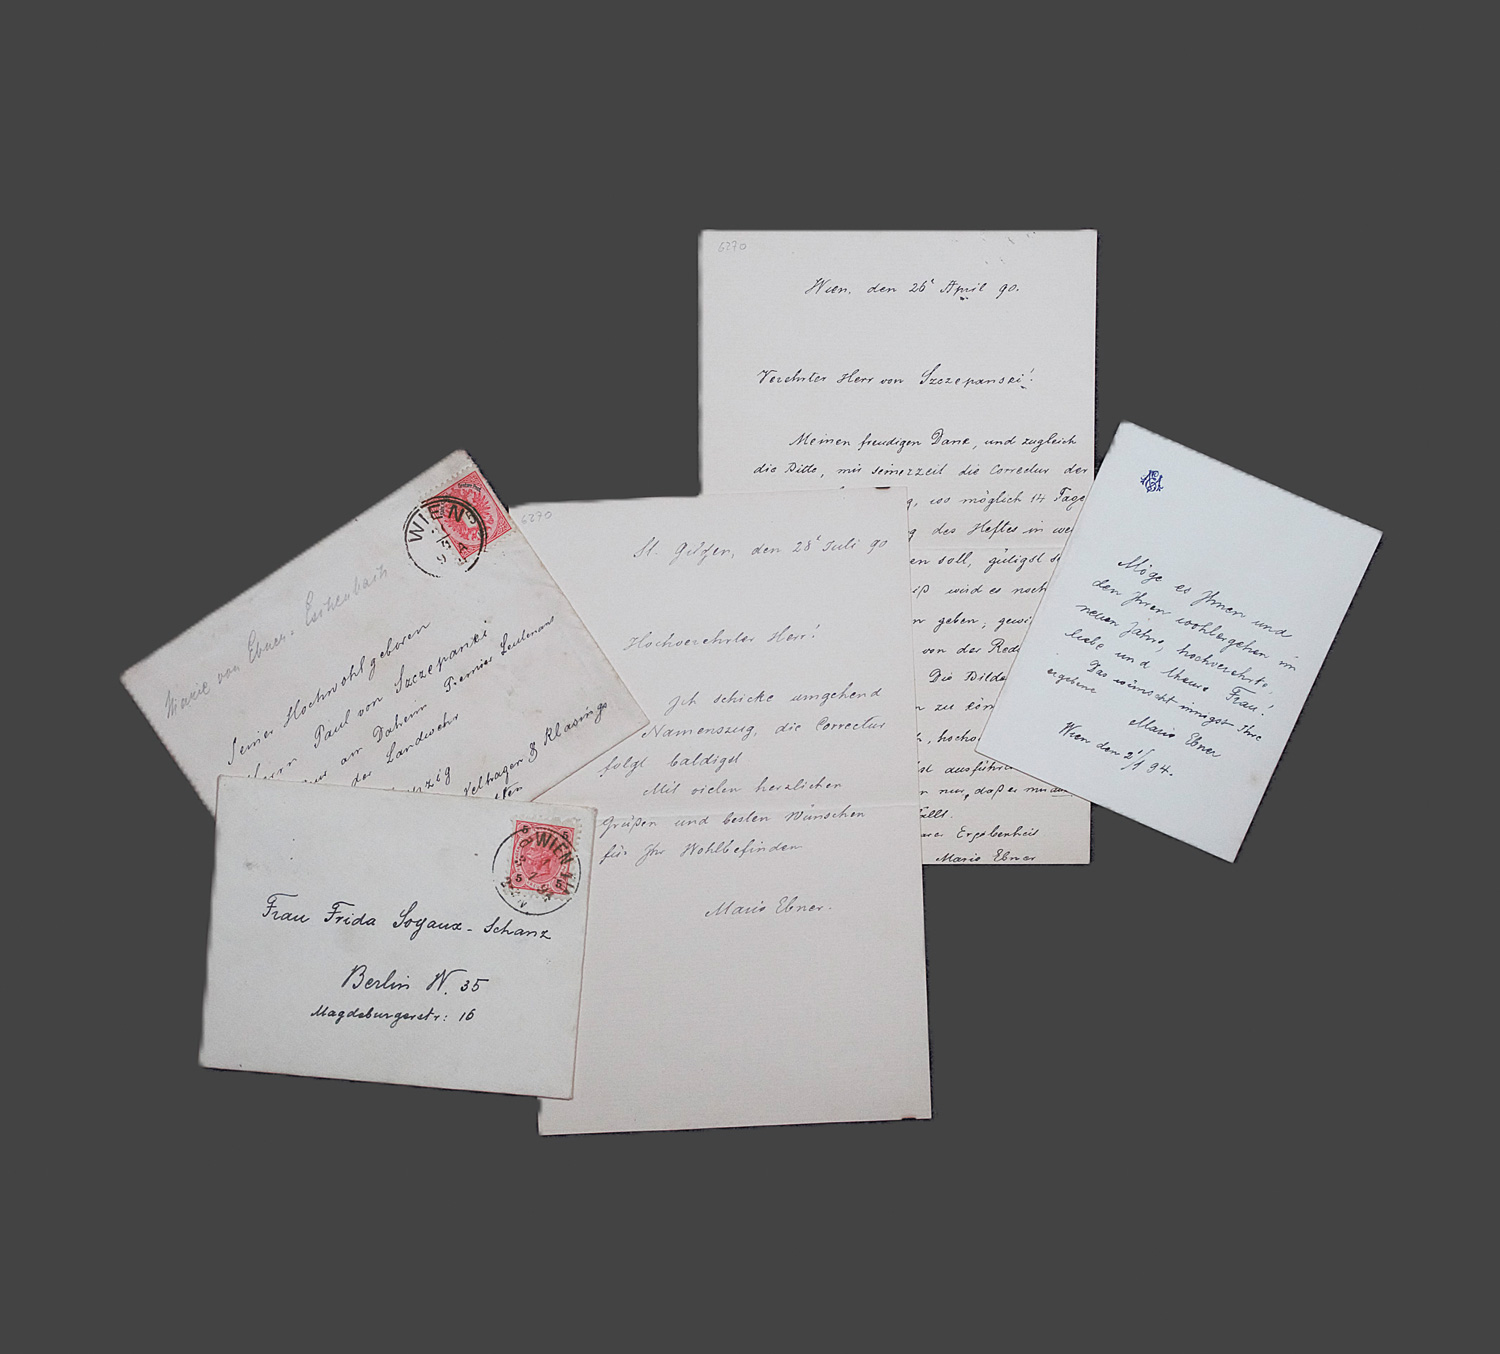 6270
Wien, den 26t April 90.
Verehrter Herr von Szczepanski!
Meinen freudigen Dank, und zugleich
die Bitte, mir seinerzeit die Correctur der
wo möglich 14 Tage
des Heftes in
en soll, gütigst
wird es noch
geben, gewi
von der Red
Die Bilde
zu kön
hocho
ausführ
nur, daß es mir
Ergebenheit
Marie Ebner
6270
St. Gilgen, den 28t Juli 90
Hochverehrter Herr!
Ich schicke umgehend
Namenszug, die Correctur
folgt baldigst
Mit vielen herzlichen
Grüßen und besten Wünschen
für Ihr Wohlbefinden
Marie Ebner.
Möge es Ihnen und
den Ihren wohlergehen im
neuen Jahre, hochverehrte,
liebe und theure Frau!
Das wünscht innigst Ihre
ergebene
Marie Ebner
Wien den 2t/1 94.
Marie von Ebner-Eschenbach
WIEN
Seiner Hochwohlgeboren
Herrn Paul von Szczepanski
am Daheim Premier Lieutenant
der Landwehr
Velhagen & Klasings
WIEN
5 5
5 5
WIEN
Frau Frida Soyaux-Schanz
Berlin W. 35
Magdeburgerstr: 16